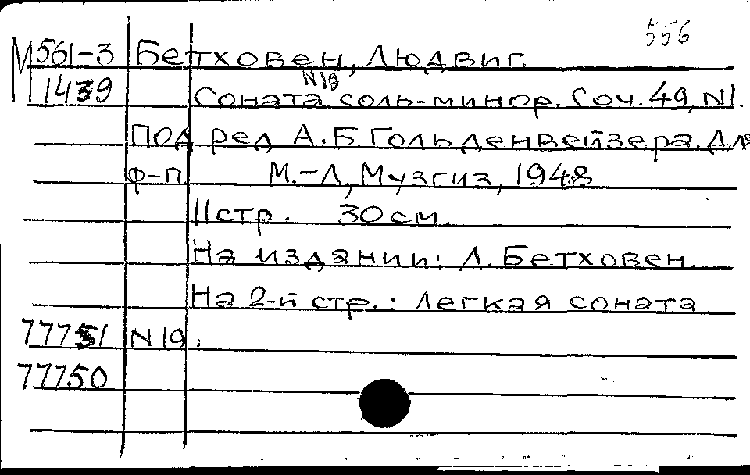 556
М 561-3 Бетховен, Людвиг.
1439 Соната N19 соль-минор. Соч. 49, N1.
Под ред А.Б Гольденвейзера. Для
ф-п. М.-Л, Музгиз, 1948
11 стр. 30 см.
На издании: Л. Бетховен.
На 2-й стр.: Легкая соната
77751 N 19.
77750